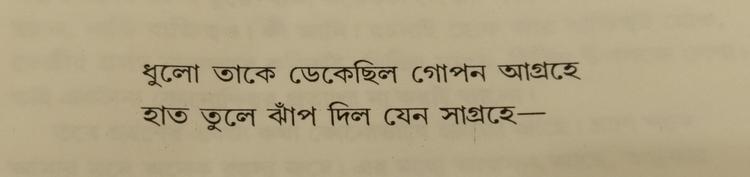 ধুলো তাকে ডেকেছিল গোপন আগ্রহে
হাত তুলে ঝাঁপ দিল যেন সাগ্রহে—